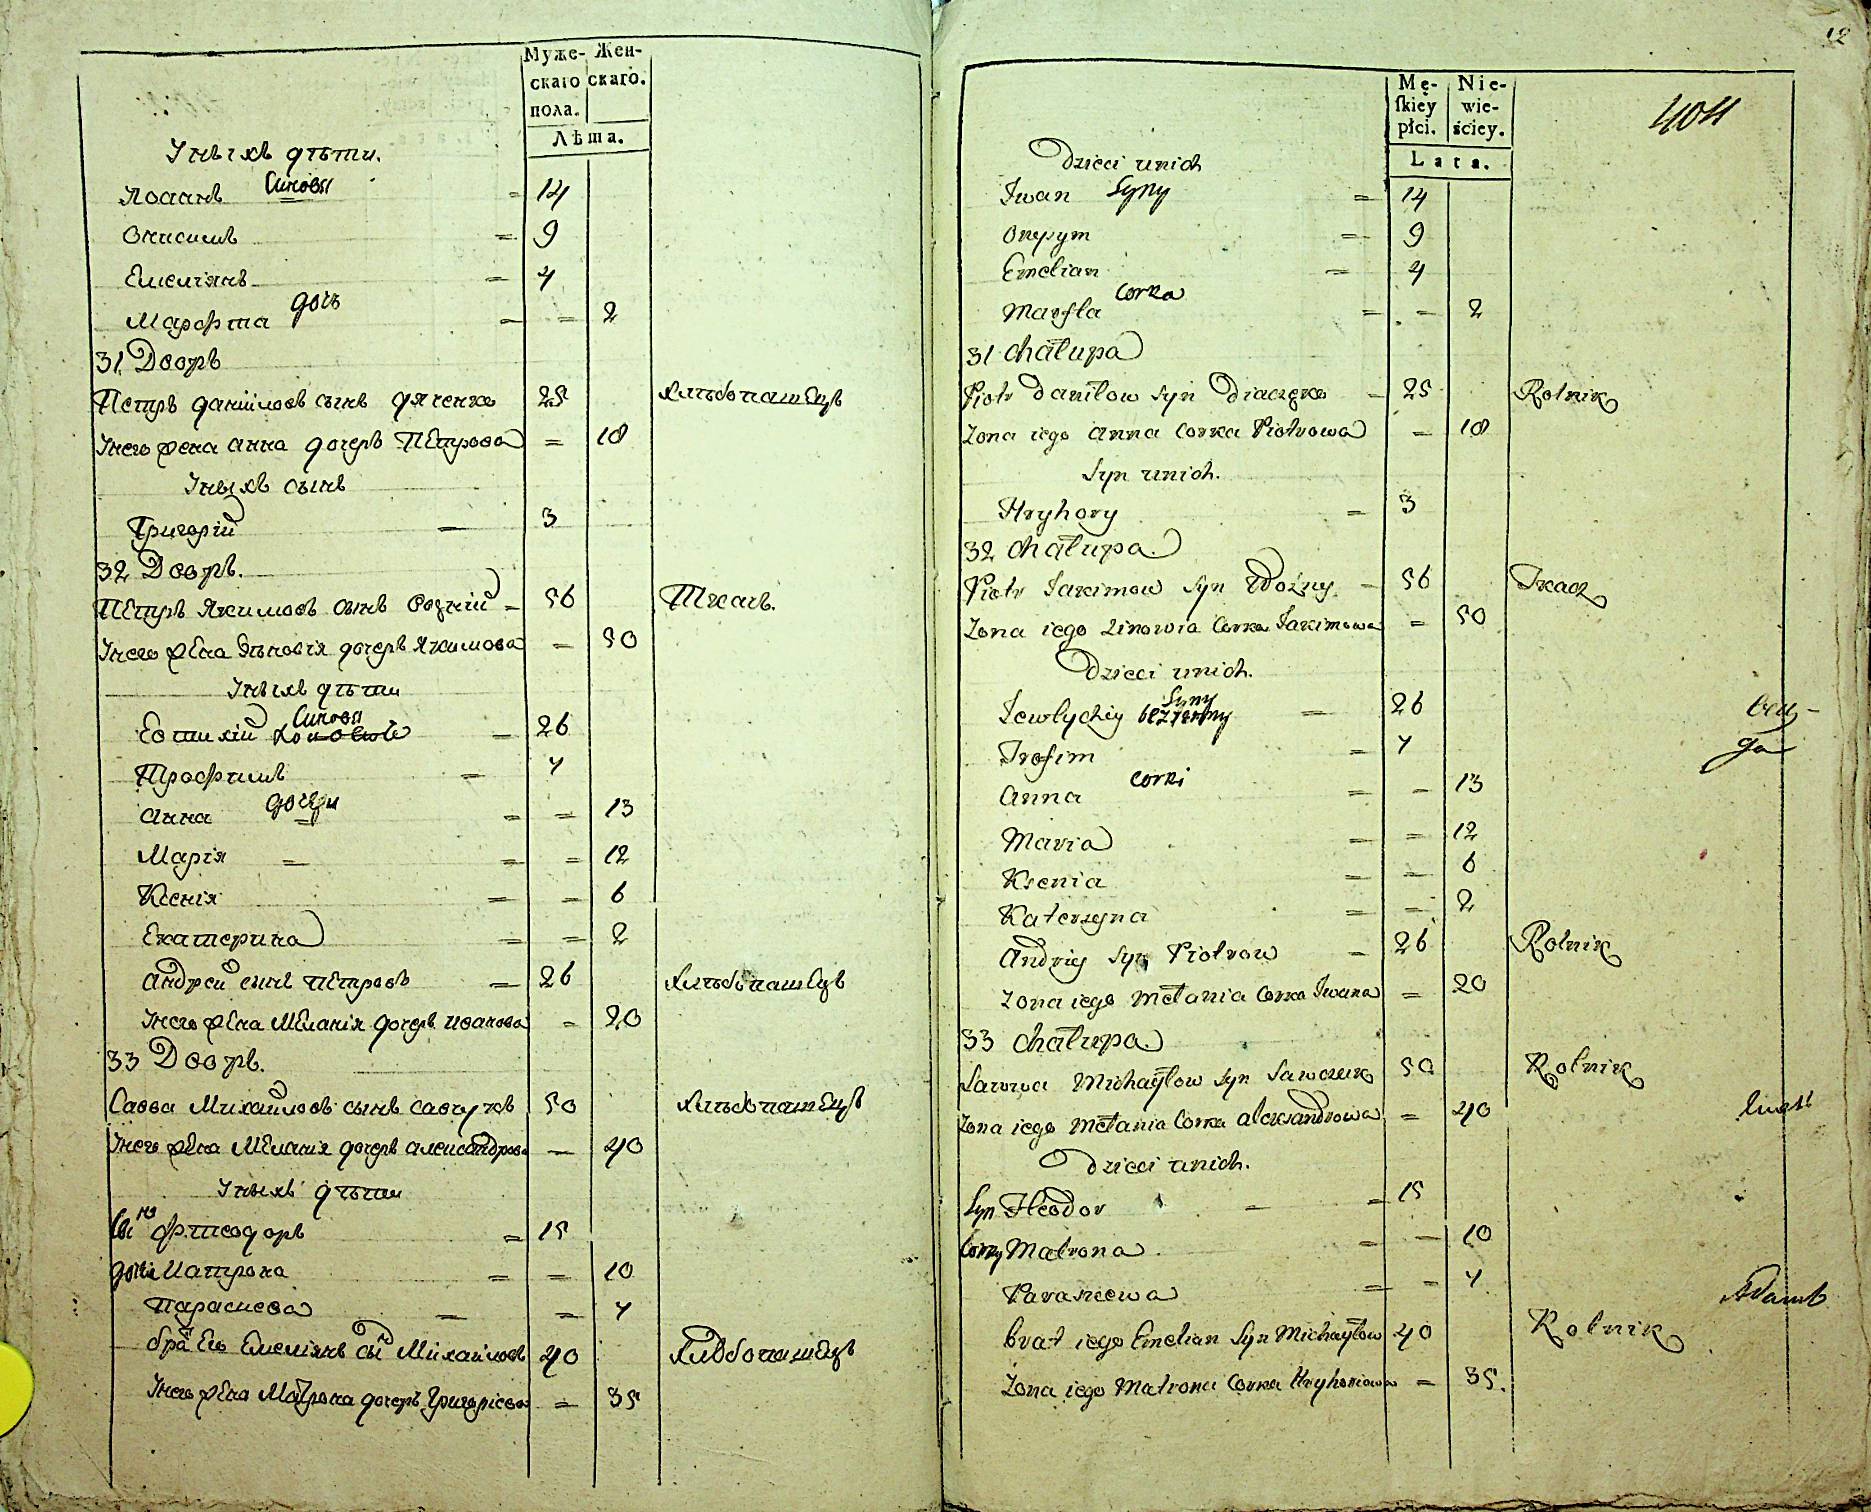 Муже- Жен-
скаго скаго.
пола.
Лѣта.
У нихъ дѣти.
Иоанъ Синовы = 14
Онисимъ = 9
Емеліянъ = 4
Марфта дочь = = 2
31 Дворъ
Петръ Даніиловъ сынъ Дяченко 25 хлѣбопашецъ
У него жена Анна дочерь Петрова = 18
У нихъ сынъ
Григорій = 3
32 Дворъ.
Петръ Якимовъ сынъ Возній = 56 Ткачъ.
У него жена Зѣновія дочерь Якимова = 50
У нихъ дѣти
Синовы
Евтихій = 26
Трофимъ = 4
Анна дочери = = 13
Марія = = = 12
Ксенія = = 6
Екатерина = = 2
Андрей сынъ Петровъ = 26 хлѣбопашецъ
У него жена Меланія дочерь Иванова = 20
33 Дворъ.
Савва Михайловъ сынъ Савчукъ 50 хлѣбопашецъ
У него жена Меланія дочерь Александрова = 40
У нихъ дѣти
Сынъ Фтеодоръ = 15
дочь Матрона = = 10
Параскева = = 4
братъ Его Емеліянъ сынъ Михайловъ 40 хлѣбопашецъ
У него жена Матрона дочерь Григоріева = 35
12
Mę- Nie-
skiey wie-
płci. ściey.
Lata.
404
Dzieci unich
Iwan Syny = 14
= 9
Emelian = 4
Corka
Marfta = = 2
31 Chałupa
Piotr Daniłow Syn Diaczęko = 25 Rolnik
Zona iego Anna Corka Piotrowa = 18
Syn unich.
Hryhory = 3
32 Chałupa.
Piotr Jakimow Syn Woźny = 56 Tkacz
Zona iego Zinowia Corka Jakimowa = 50
Dzieci unich.
Syny
Jewtychiy bezżenny = 26
Trofim = 4
Corki
Anna = = 13
Maria = = 12
Ksenia = = 6
Katerzyna = = 2
Andriy Syn Piotrow = 26 Rolnik
Zona iego Mełania Corka Iwana = 20
33 Chałupa
Sawwa Michayłow Syn Sawczuk 50 Rolnik
Zona iego Mełania Corka Aleksandrowa = 40
Dzieci unich.
Syn Fteodor = = 15
Corky Matrona = = 10
Paraskewa = = 4
Brat iego Emelian Syn Michayłow 40 Rolnik
Zona iego Matrona Corka Hryhoriowa = 35.